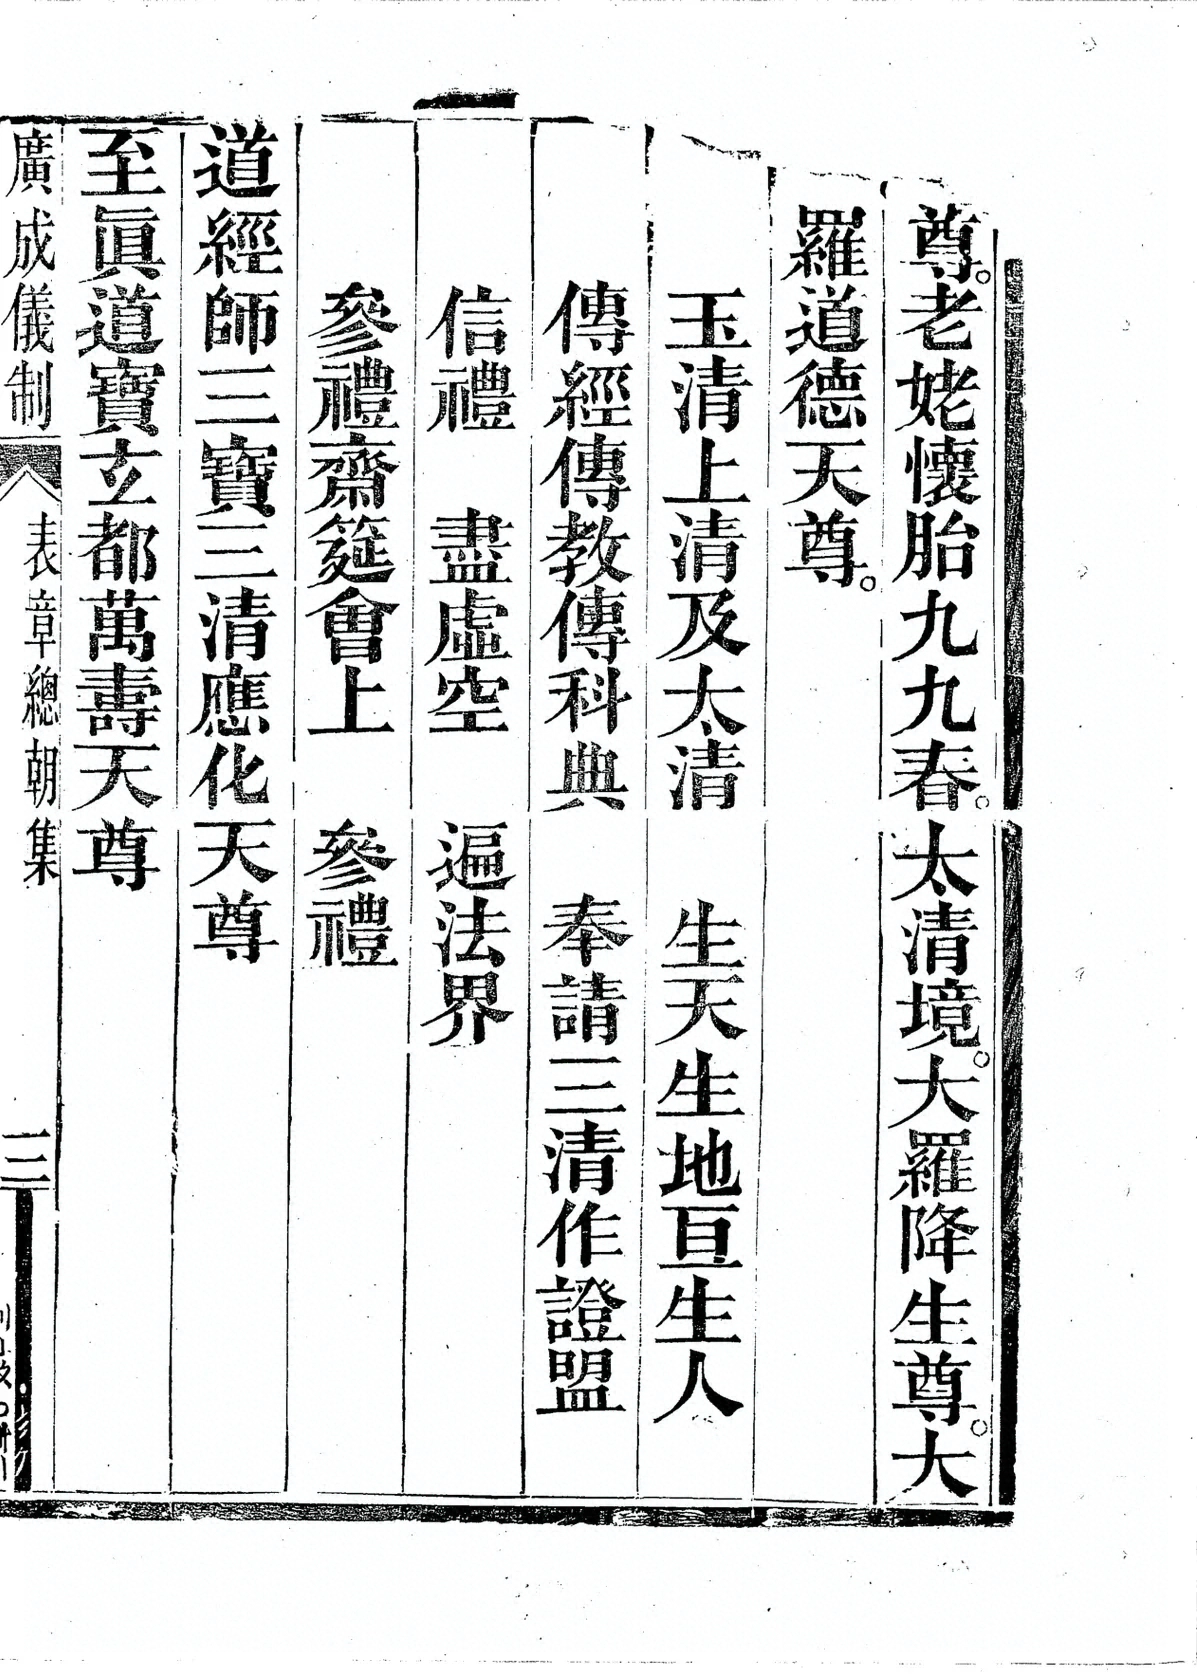 尊。老姥懷胎九九春。太清境。大羅降生尊。大
羅道德天尊。
玉清上清及太清　生天生地亘生人
傳經傳教傳科典　奉請三清作證盟
信禮　盡虛空　遍法界
參禮齋筵會上　參禮
道經師三寶三清應化天尊
至眞道寶玄都萬壽天尊
廣成儀制　表章總朝集　三